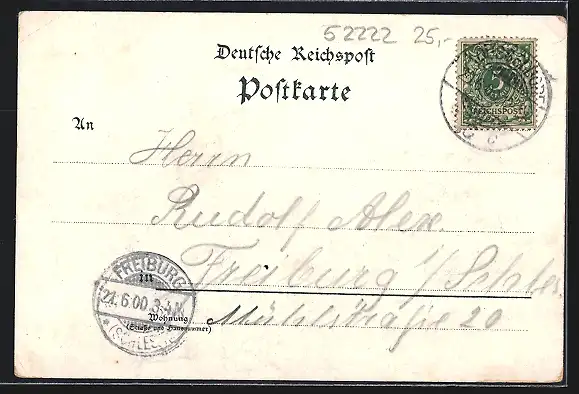 52222 25,-
Deutsche Reichspost
Postkarte
An
5
REICHSPOST
Herrn
Rudolf Alex.
Freiburg i/Schles
in
Mühlstraße 20
Wohnung
(Straße und Hausnummer)
FREIBURG
21.6.00 3-4.N.
*(SCHLES.)